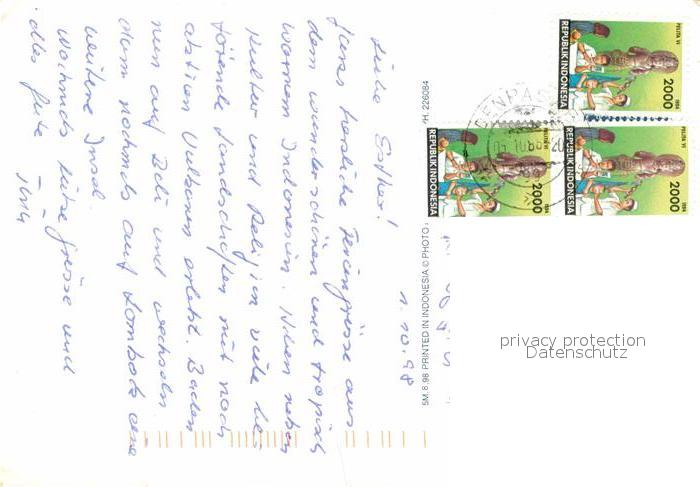 1.10.98
Liebe Esther!
ganz herzliche Feriengrüsse aus
dem wunderschönen und tropisch
warmem Indonesien. Haben neben
Kultur und Religion viele be-
törende Landschaften mit noch
aktiven Vulkanen erlebt. Baden
nun auf Bali und wechseln
dann nochmals auf Lombok eine
weitere Insel.
Weitmals liebe Grüsse und
alles Gute
REPUBLIK INDONESIA
PELITA VI
2000
1994
REPUBLIK INDONESIA
PELITA VI
2000
1994
REPUBLIK INDONESIA
PELITA VI
2000
1994
DENPAS
5M. 8.98 PRINTED IN INDONESIA © PHOTO
PH. 226084
privacy protection
Datenschutz